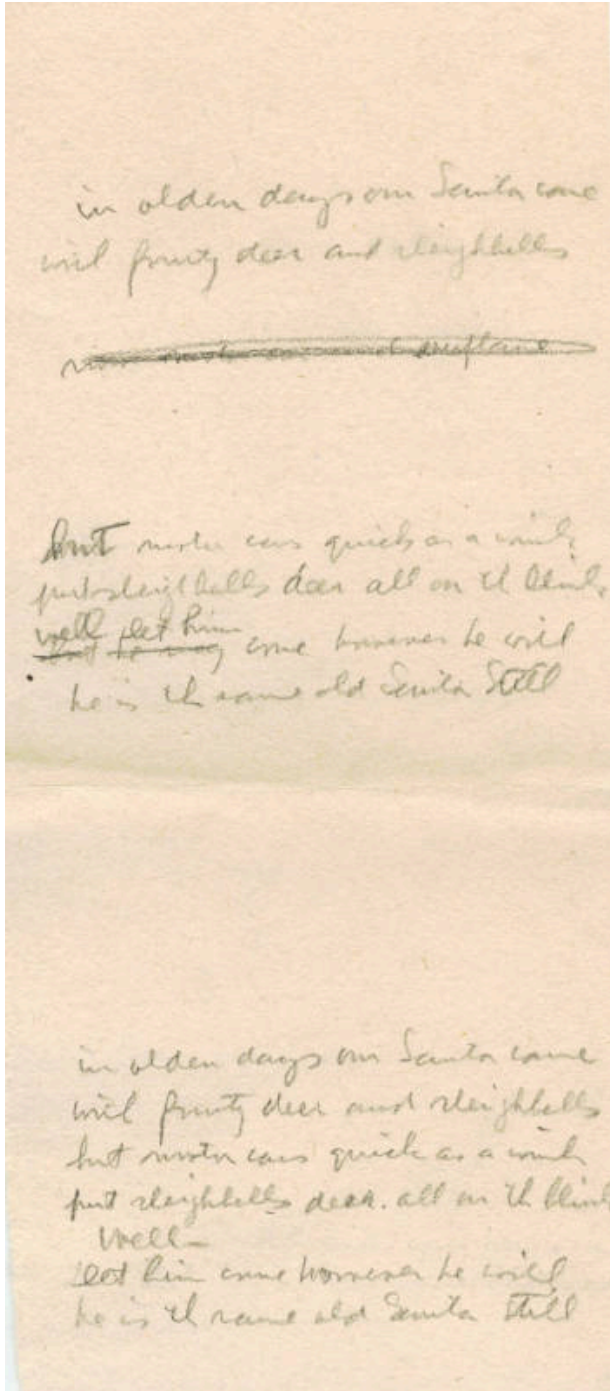 in olden days our Santa came
with frosty deer and sleighbells
now motor cars and airplane
but motor cars quick as a wink
put sleighbells deer all on th blink
well let him
come however he will
he is th same old Santa Still
in olden days our Santa came
with frosty deer and sleighbells
but motor cars quick as a wink
put sleighbells deer. all on th blink
Well—
let him come however he will
he is th same old Santa Still